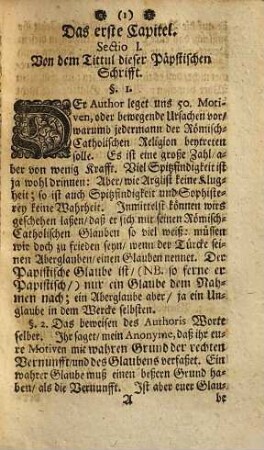 (1)
Das erste Capitel.
Sectio I.
Von dem Tittul dieser Päpstischen
Schrifft.
§. 1.
DEr Author leget uns 50. Moti-
ven, oder bewegende Ursachen vor/
warumb jedermann der Römisch-
Catholischen Religion beytreten
solle. Es ist eine große Zahl a-
ber von wenig Krafft. Viel Spitzfindigkeit ist
ja wohl drinnen: Aber/ wie Arglist keine Klug-
heit; so ist auch Spitzfindigkeit und Sophiste-
rey keine Wahrheit. Inmittelst können wirs
geschehen laßen/ daß er sich mit seinen Römisch-
Catholischen Glauben so viel weiß: müssen
wir doch zu frieden seyn/ wenn der Türcke sei-
nen Aberglauben/ einen Glauben nennet. Der
Papistische Glaube ist/ (NB. so ferne er
Papistisch/) nur ein Glaube dem Nah-
men nach; ein Aberglaube aber/ ja ein Un-
glaube in dem Wercke selbsten.
§. 2. Das beweisen des Authoris Worte
selber. Ihr saget/ mein Anonyme, daß ihr eu-
re Motiven mit wahren Grund der rechten
Vernunfft/ und des Glaubens verfaßet. Ein
wahrer Glaube muß einen beßren Grund ha-
ben/ als die Vernunfft. Ist aber euer Glau-
A be